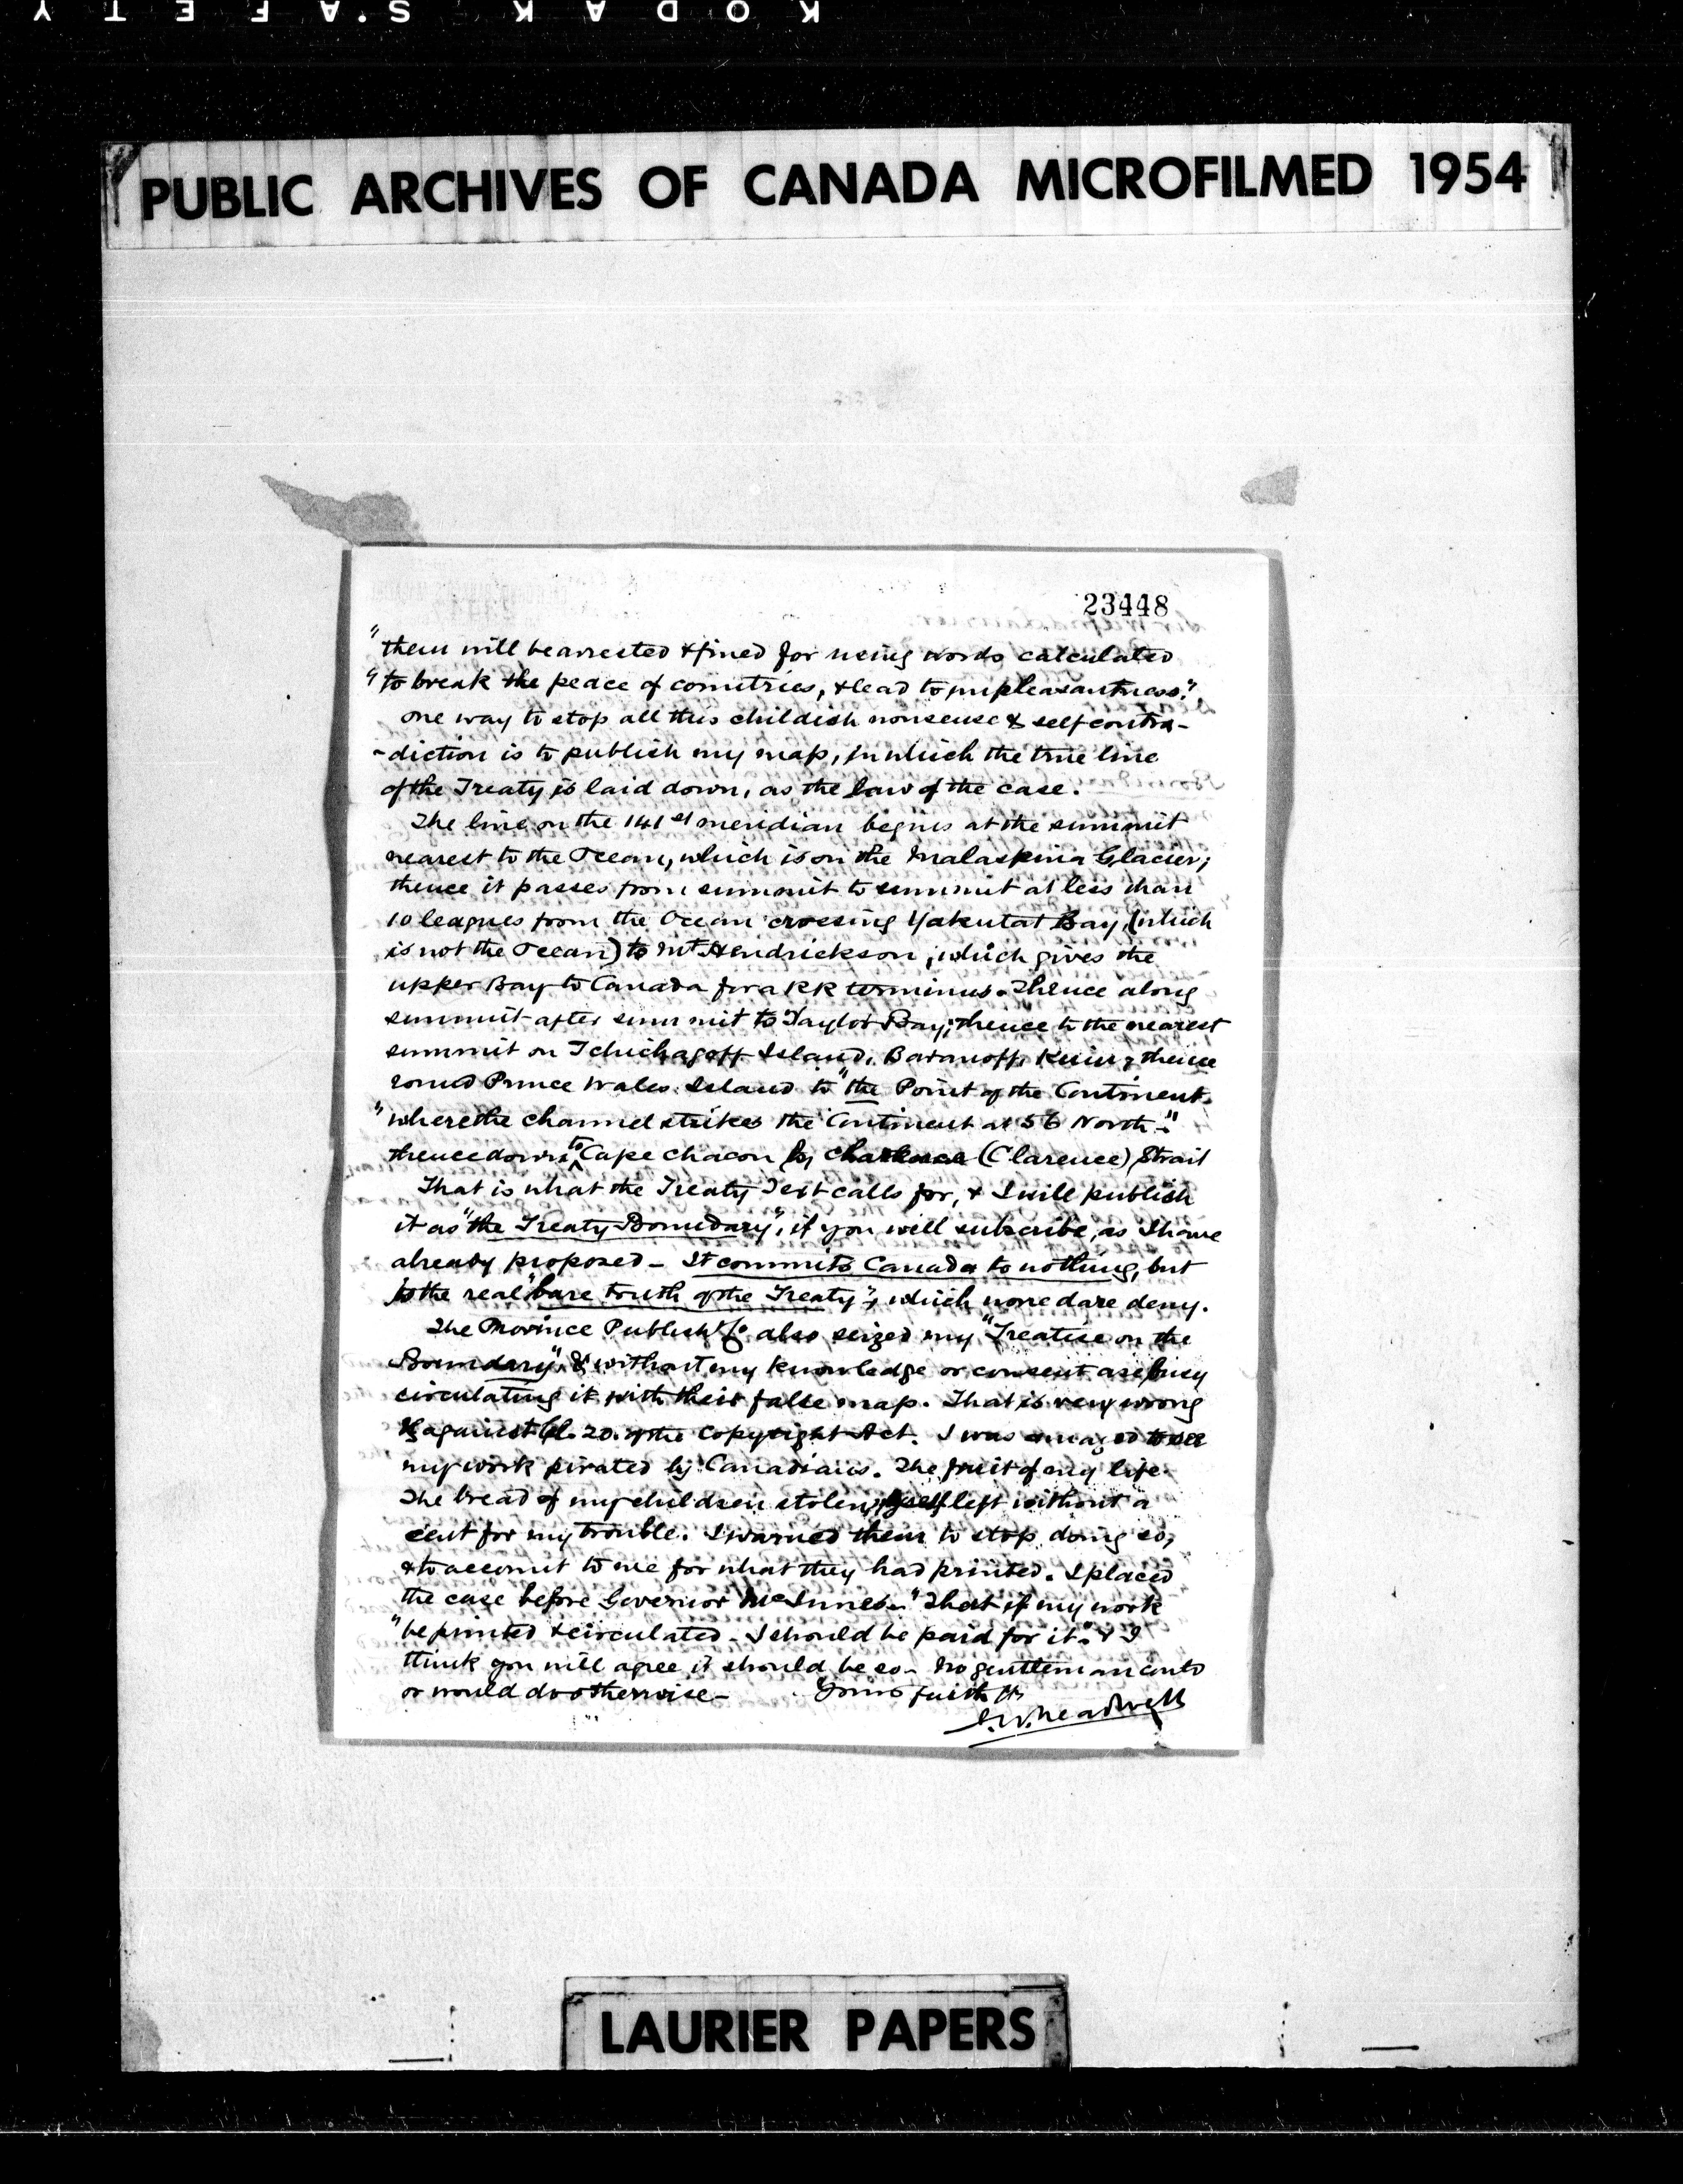 KODAK SAFETY
PUBLIC ARCHIVES OF CANADA MICROFILMED 1954
23448
"them will be arrested & fined for using words calculated
"to break the peace of countries, & lead to unpleasantness."
One way to stop all this childish nonsense & self contra-
-diction is to publish my map, in which the true line
of the Treaty is laid down, as the law of the case.
The line on the 141st meridian begins at the summit
nearest to the Ocean, which is on the Malaspina Glacier;
thence it passes from summit to summit at less than
10 leagues from the Ocean crossing Yakutat Bay, (which
is not the Ocean) to Mt Hendrickson; which gives the
upper Bay to Canada for a RR terminus. Thence along
summit after summit to Taylor Bay; thence to the nearest
summit on Tchichagoff Island, Baranoff, Kuiu, thence
round Prince Wales Island to "the Point of the Continent
"where the channel strikes the Continent at 56 North-"
thence down to Cape Chacon by (Clarence) Strait
That is what the Treaty Text calls for, & I will publish
it as "the Treaty Boundary", if you will subscribe, as I have
already proposed - It commits Canada to nothing, but
to the real "bare truth of the Treaty", which none dare deny.
The Province Publishg Co also seized my "Treatise on the
Boundary", & without my knowledge or consent are busy
circulating it with their false map. That is very wrong
& against Cl. 20. of the Copyright Act. I was amazed to see
my work pirated by Canadians. The fruit of my life
The bread of my children stolen, left without a
cent for my trouble. I warned them to stop doing so,
& to account to me for what they had printed. I placed
the case before Governor McInnes - "That if my work
"be printed & circulated - I should be paid for it." & I
think you will agree it should be so - No gentleman could
or would do otherwise - Yours faithfy
LAURIER PAPERS